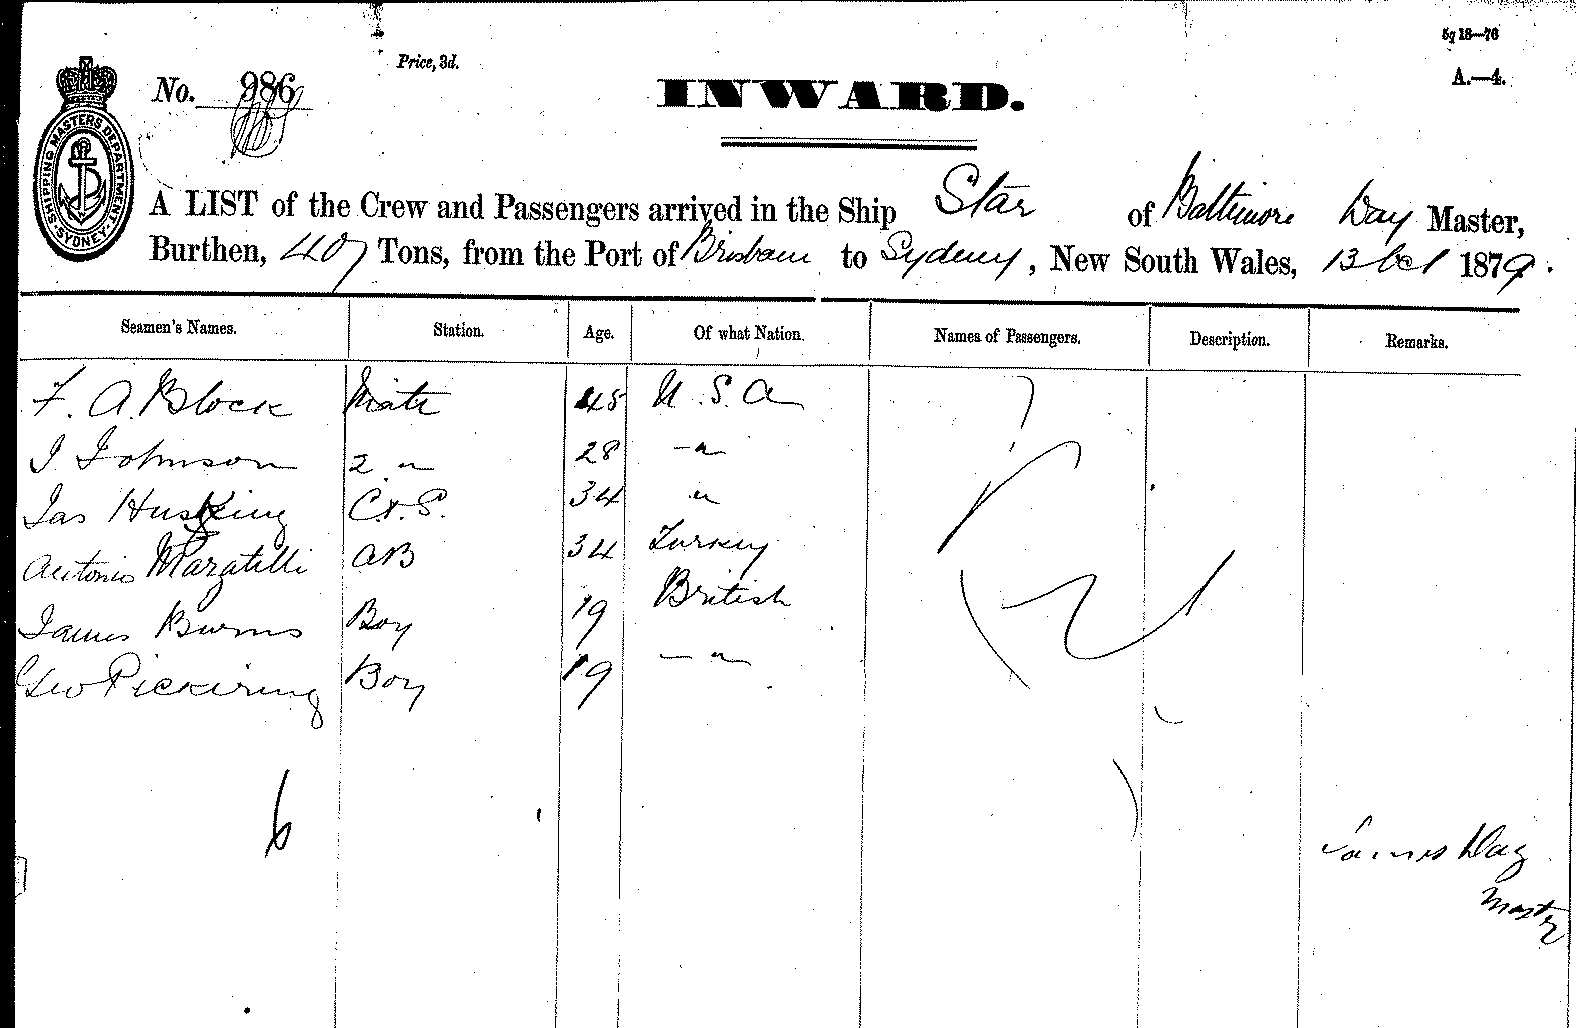 5g 18—76
Price, 3d.
A.—4.
No. 986
INWARD.
SHIPPING MASTERS DEPARTMENT
SYDNEY
A LIST of the Crew and Passengers arrived in the Ship Star of Baltimore Day Master,
Burthen, 407 Tons, from the Port of Brisbane to Sydney, New South Wales, 13 Oct 1879.
Seamen's Names. Station. Age. Of what Nation. Names of Passengers. Description. Remarks.
F. A. Block Mate 45 U.S.A
J Johnson 2 " 28 — "
Jas Husking C.&S. 34 "
Antonio Maratilli AB 34 Turkey
James Burns Boy 19 British
Geo Pickiring Boy 19 — "
Nil
6
James Day
Master